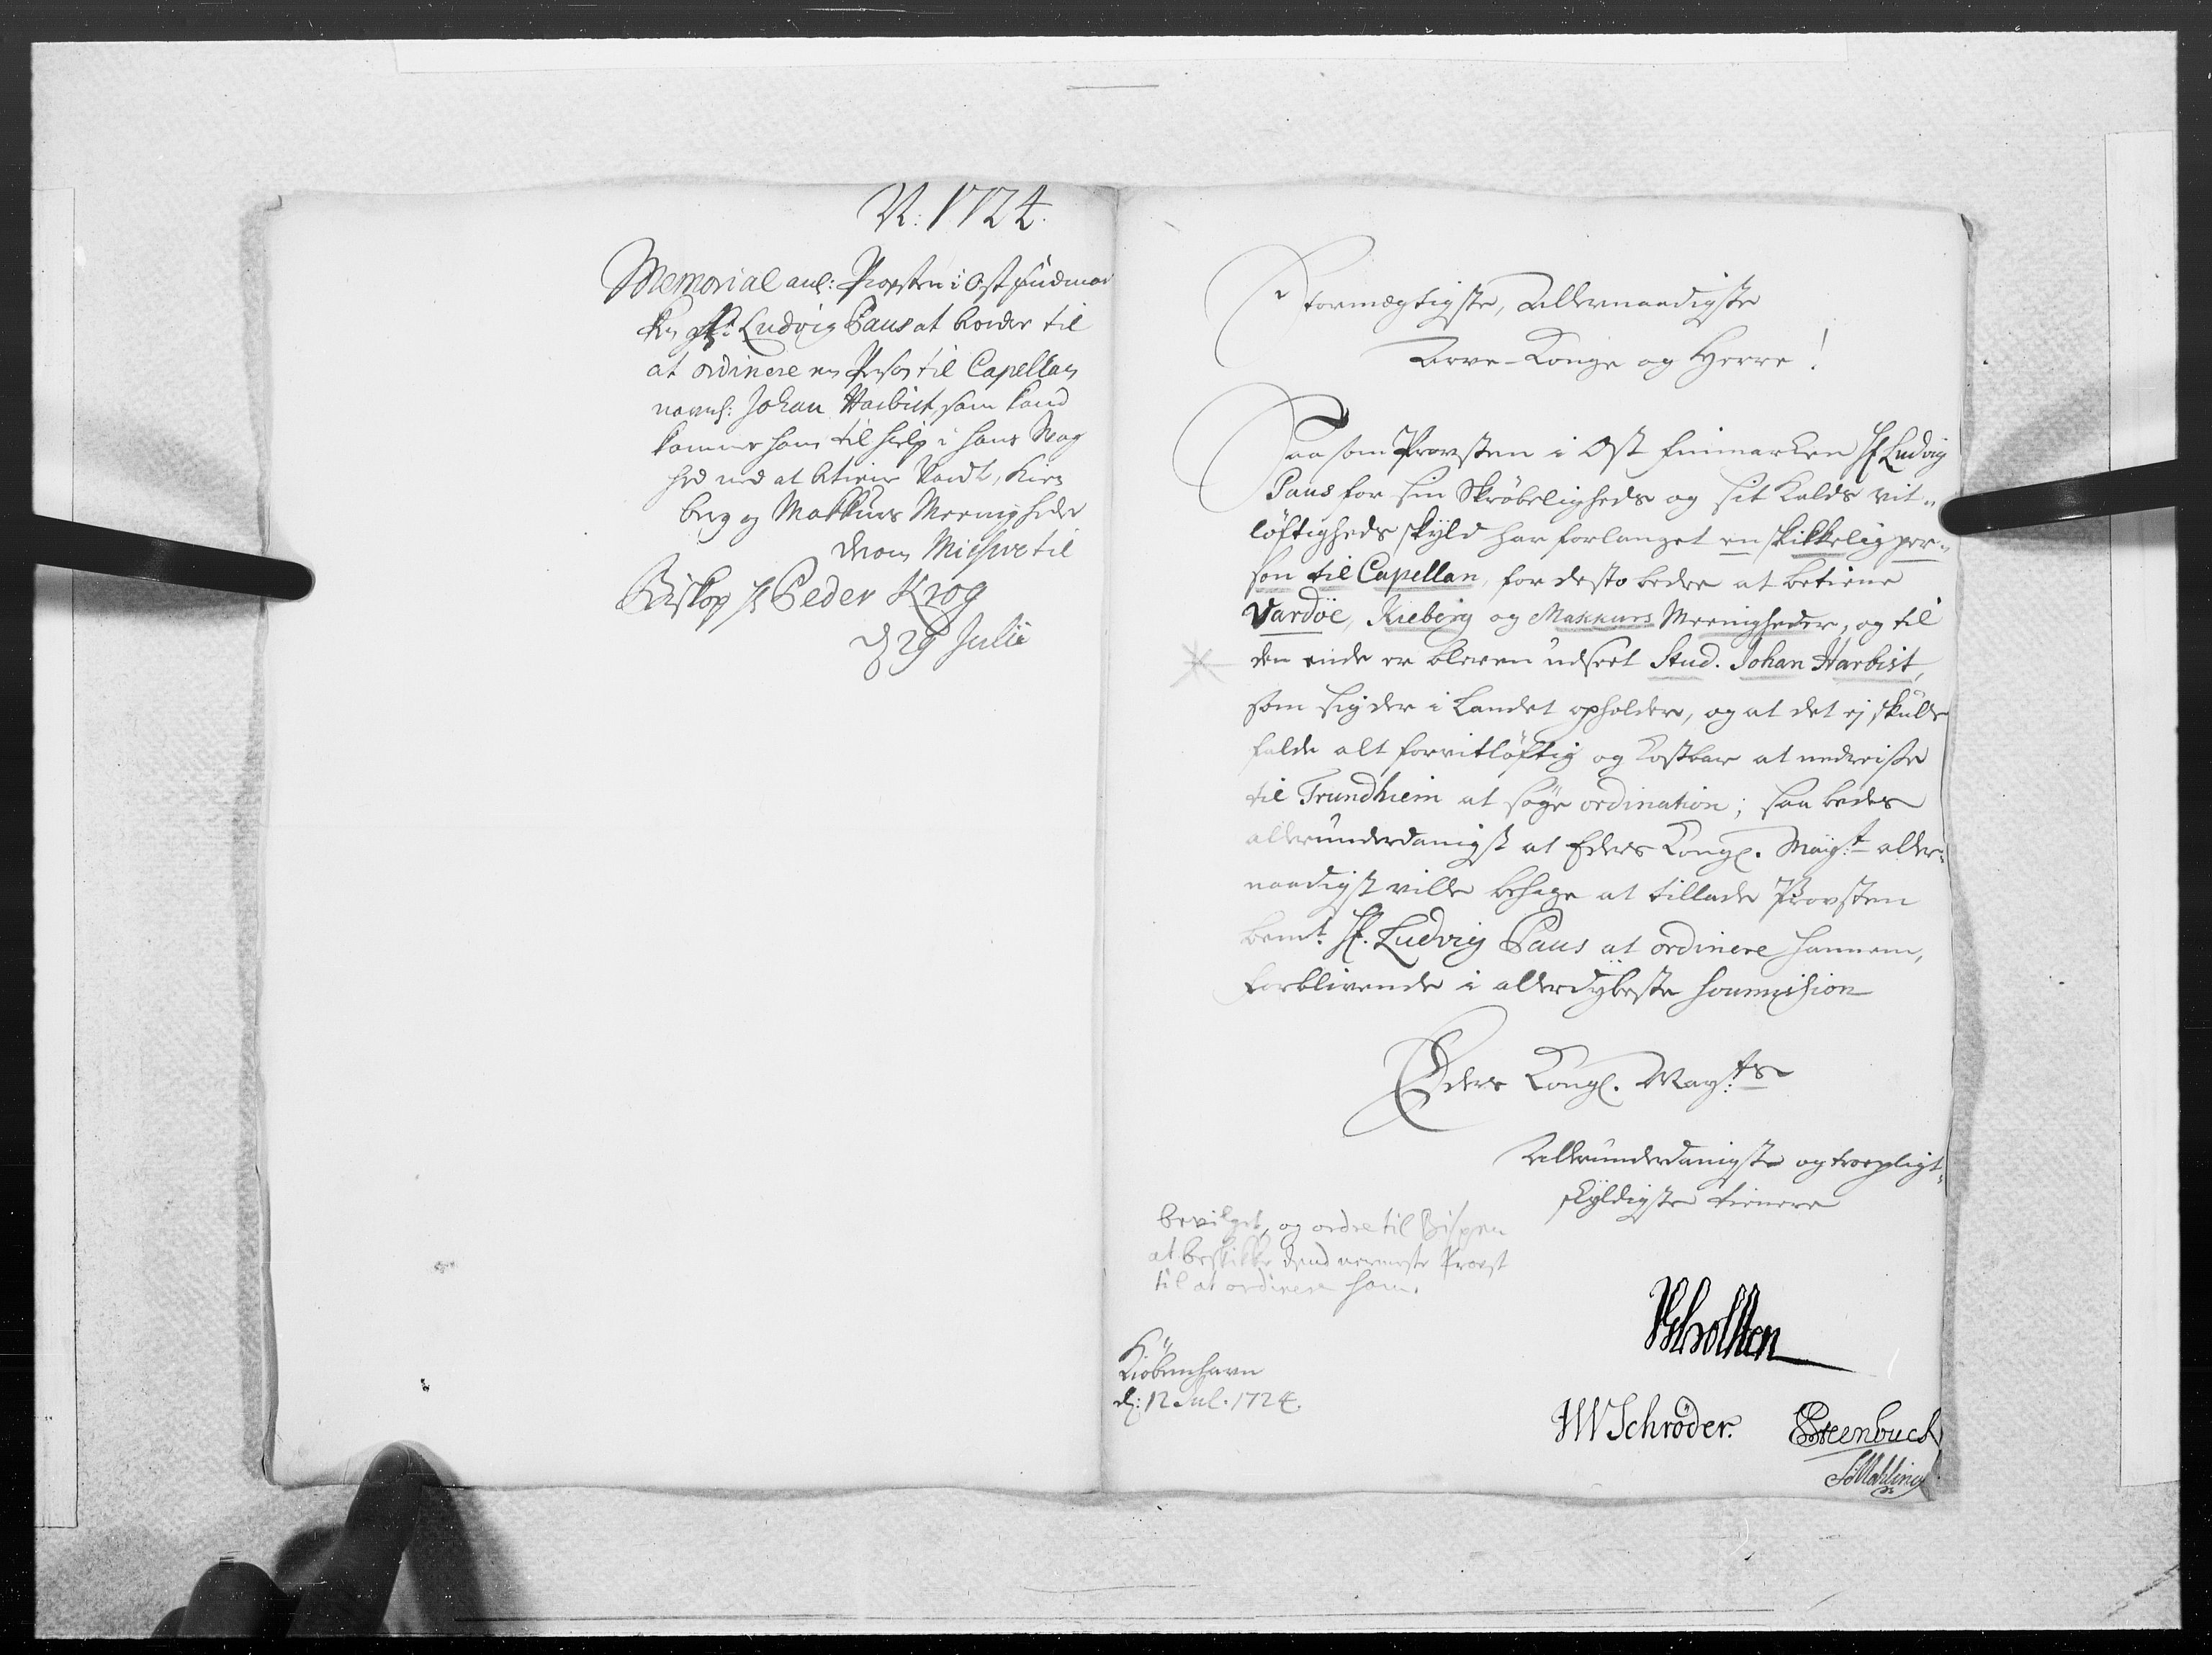 N: 1724.
Memorial anl: Provsten i Ost findmar
ken Hr: Ludvig Paus at
at ordinere en Person til Capellan
navnl: Johan Harbist, som kand
komme ham til hielp i hans Svag
hed med at betiene Vardö, Kier
berg og Makkurs Meenigheder
Missive til
Biskop Hr Peder Krog
d 29 Julii
Stormægtigste, Allernaadigste
Arve-Konge og Herre!
Saasom Provsten i Ost finmarken Hr Ludvig
Paus for sin Skröbeligheds og sit Kalds vit-
löftigheds skyld har forlanget en skikkelig per-
son til Capellan, for desto bedre at betiene
Vardöe, Kieberg og Makkurs Meenigheder, og til
den ende er bleven udseet Stud. Johan Harbist,
som sig der i Landet opholder, og at det ej skulle
falde alt for vitlöftig og kostbar at nedreise
til Trundhiem at söge ordination; saa bedes
allerunderdanigst at Eders Kongl. Mayst. aller-
naadigst ville behage at tillade Provsten
bemt. Hr. Ludvig Paus at ordinere hannem,
forblivende i allerdybeste soumission
Eders Kongl. Mayts
Allerunderdanigste og troepligt-
skyldigste tienere
bevilget, og ordre til Bispen
at beskikke dend nermeste Provst
til at ordinere ham.
Kiöbenhavn
d: 12 Jul. 1724.
Scholten
HW Schröder. Steenbuch
Möhling